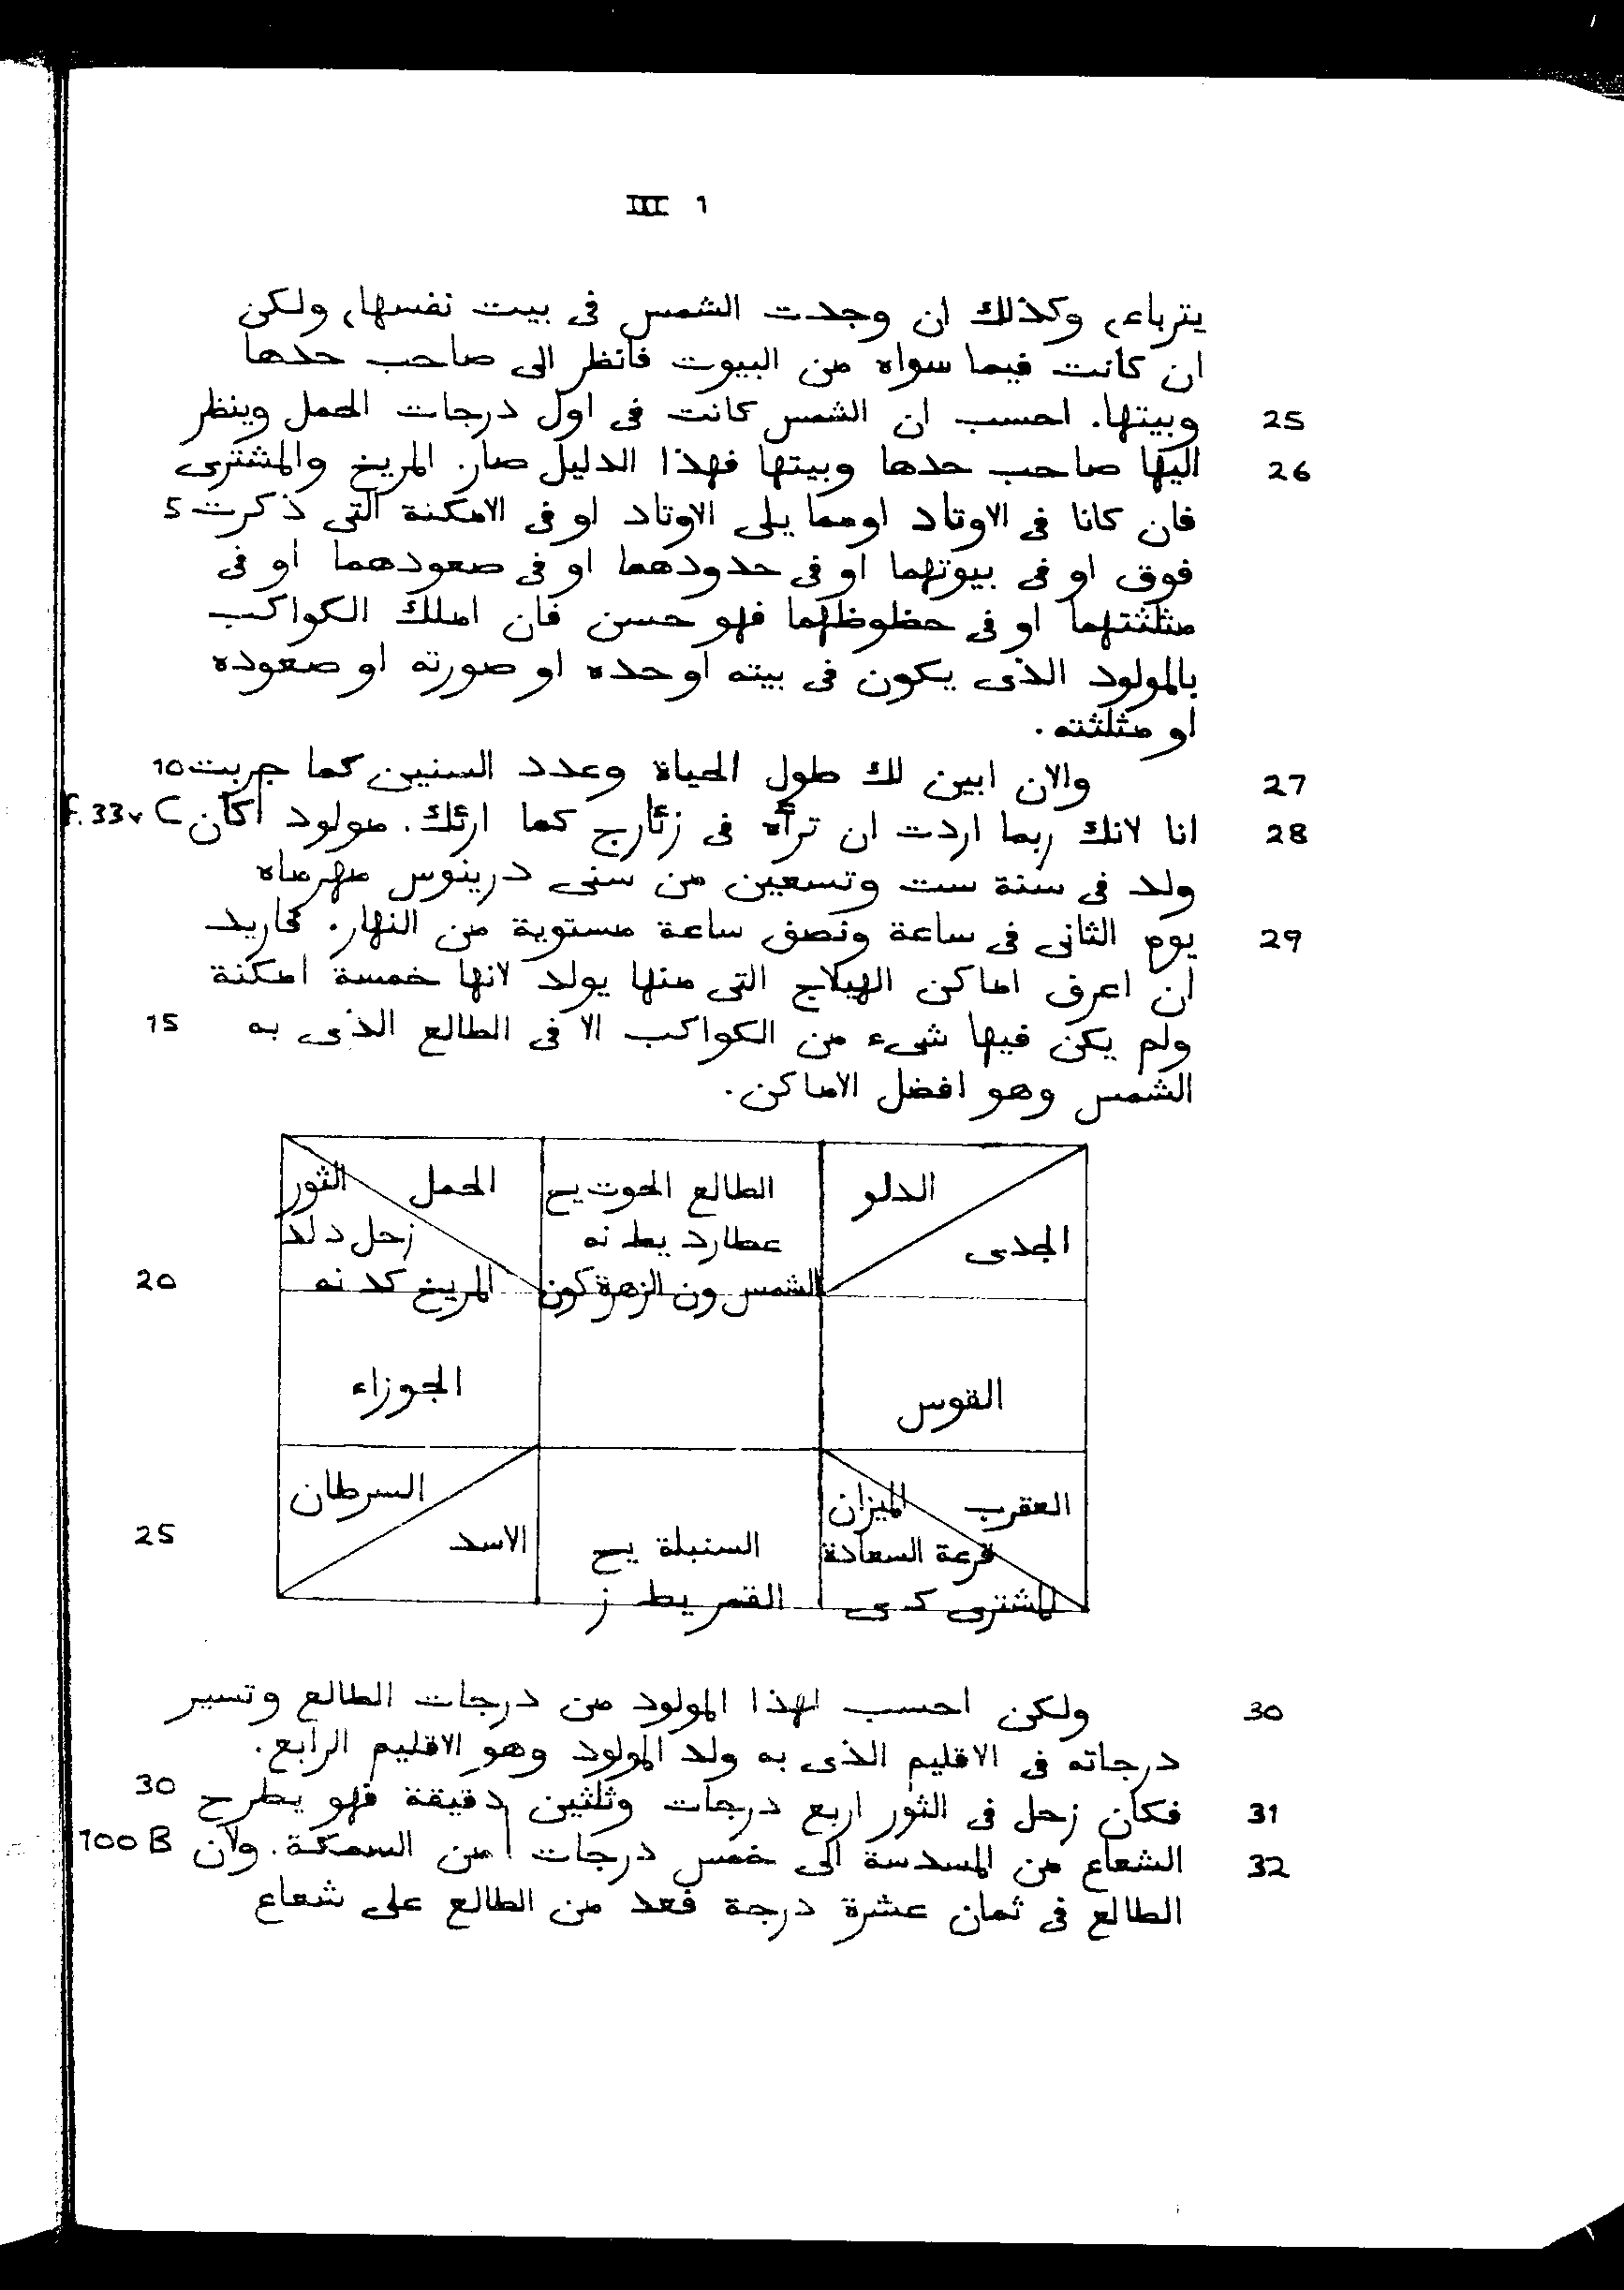 III 1
يترباء، وكذلك ان وجدت الشمس فى بيت نفسها، ولكن
ان كانت فيما سواه من البيوت فانظر الى صاحب حدها
25 وبيتها. احسب ان الشمس كانت فى اول درجات الحمل وينظر
26 اليها صاحب حدها وبيتها فهذا الدليل صار. المريخ والمشترى
فان كانا فى الاوتاد او مما يلى الاوتاد او فى الامكنة التى ذكرت 5
فوق او فى بيوتهما او فى حدودهما او فى صعودهما او فى
مثلثتهما او فى حظوظهما فهو حسن فان املك الكواكب
بالمولود الذى يكون فى بيته او حده او صورته او صعوده
او مثلثته.
27 والان ابين لك طول الحياة وعدد السنين كما جربت 10
28 انا لانك ربما اردت ان ترأه فى زئارج كما ارئك. مولود اكان f. 33v C
ولد فى سنة ست وتسعين من سنى درينوس مهرماه
29 يوم الثانى فى ساعة ونصف ساعة مستوية من النهار. فاريد
ان اعرف اماكن الهيلاج التى منها يولد لانها خمسة امكنة
ولم يكن فيها شىء من الكواكب الا فى الطالع الذى به 15
الشمس وهو افضل الاماكن.
الدلو
الجدى
الطالع الحوت يح
عطارد يط نه
الشمس ون الزهرة كون
الحمل
الثور
زحل د لد
المريخ كد نه
20
القوس
الجوزاء
العقرب
الميزان
قرعة السعادة
المشترى ك ى
السنبلة يح
القمر يط ز
السرطان
الاسد
25
30 ولكن احسب لهذا المولود من درجات الطالع وتسير
درجاته فى الاقليم الذى به ولد المولود وهو الاقليم الرابع.
31 فكان زحل فى الثور اربع درجات وثلثين دقيقة فهو يطرح 30
32 الشعاع من المسدسة الى خمس درجات من السمكة. ولان 100 B
الطالع فى ثمان عشرة درجة فعد من الطالع على شعاع